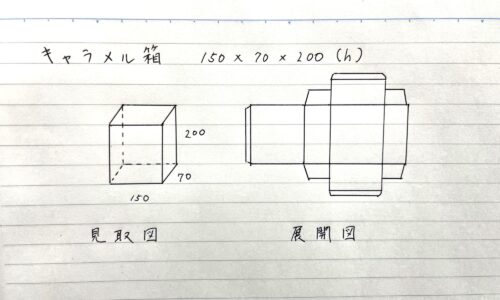 キャラメル箱 150×70×200(h)
200
70
150
見取図
展開図